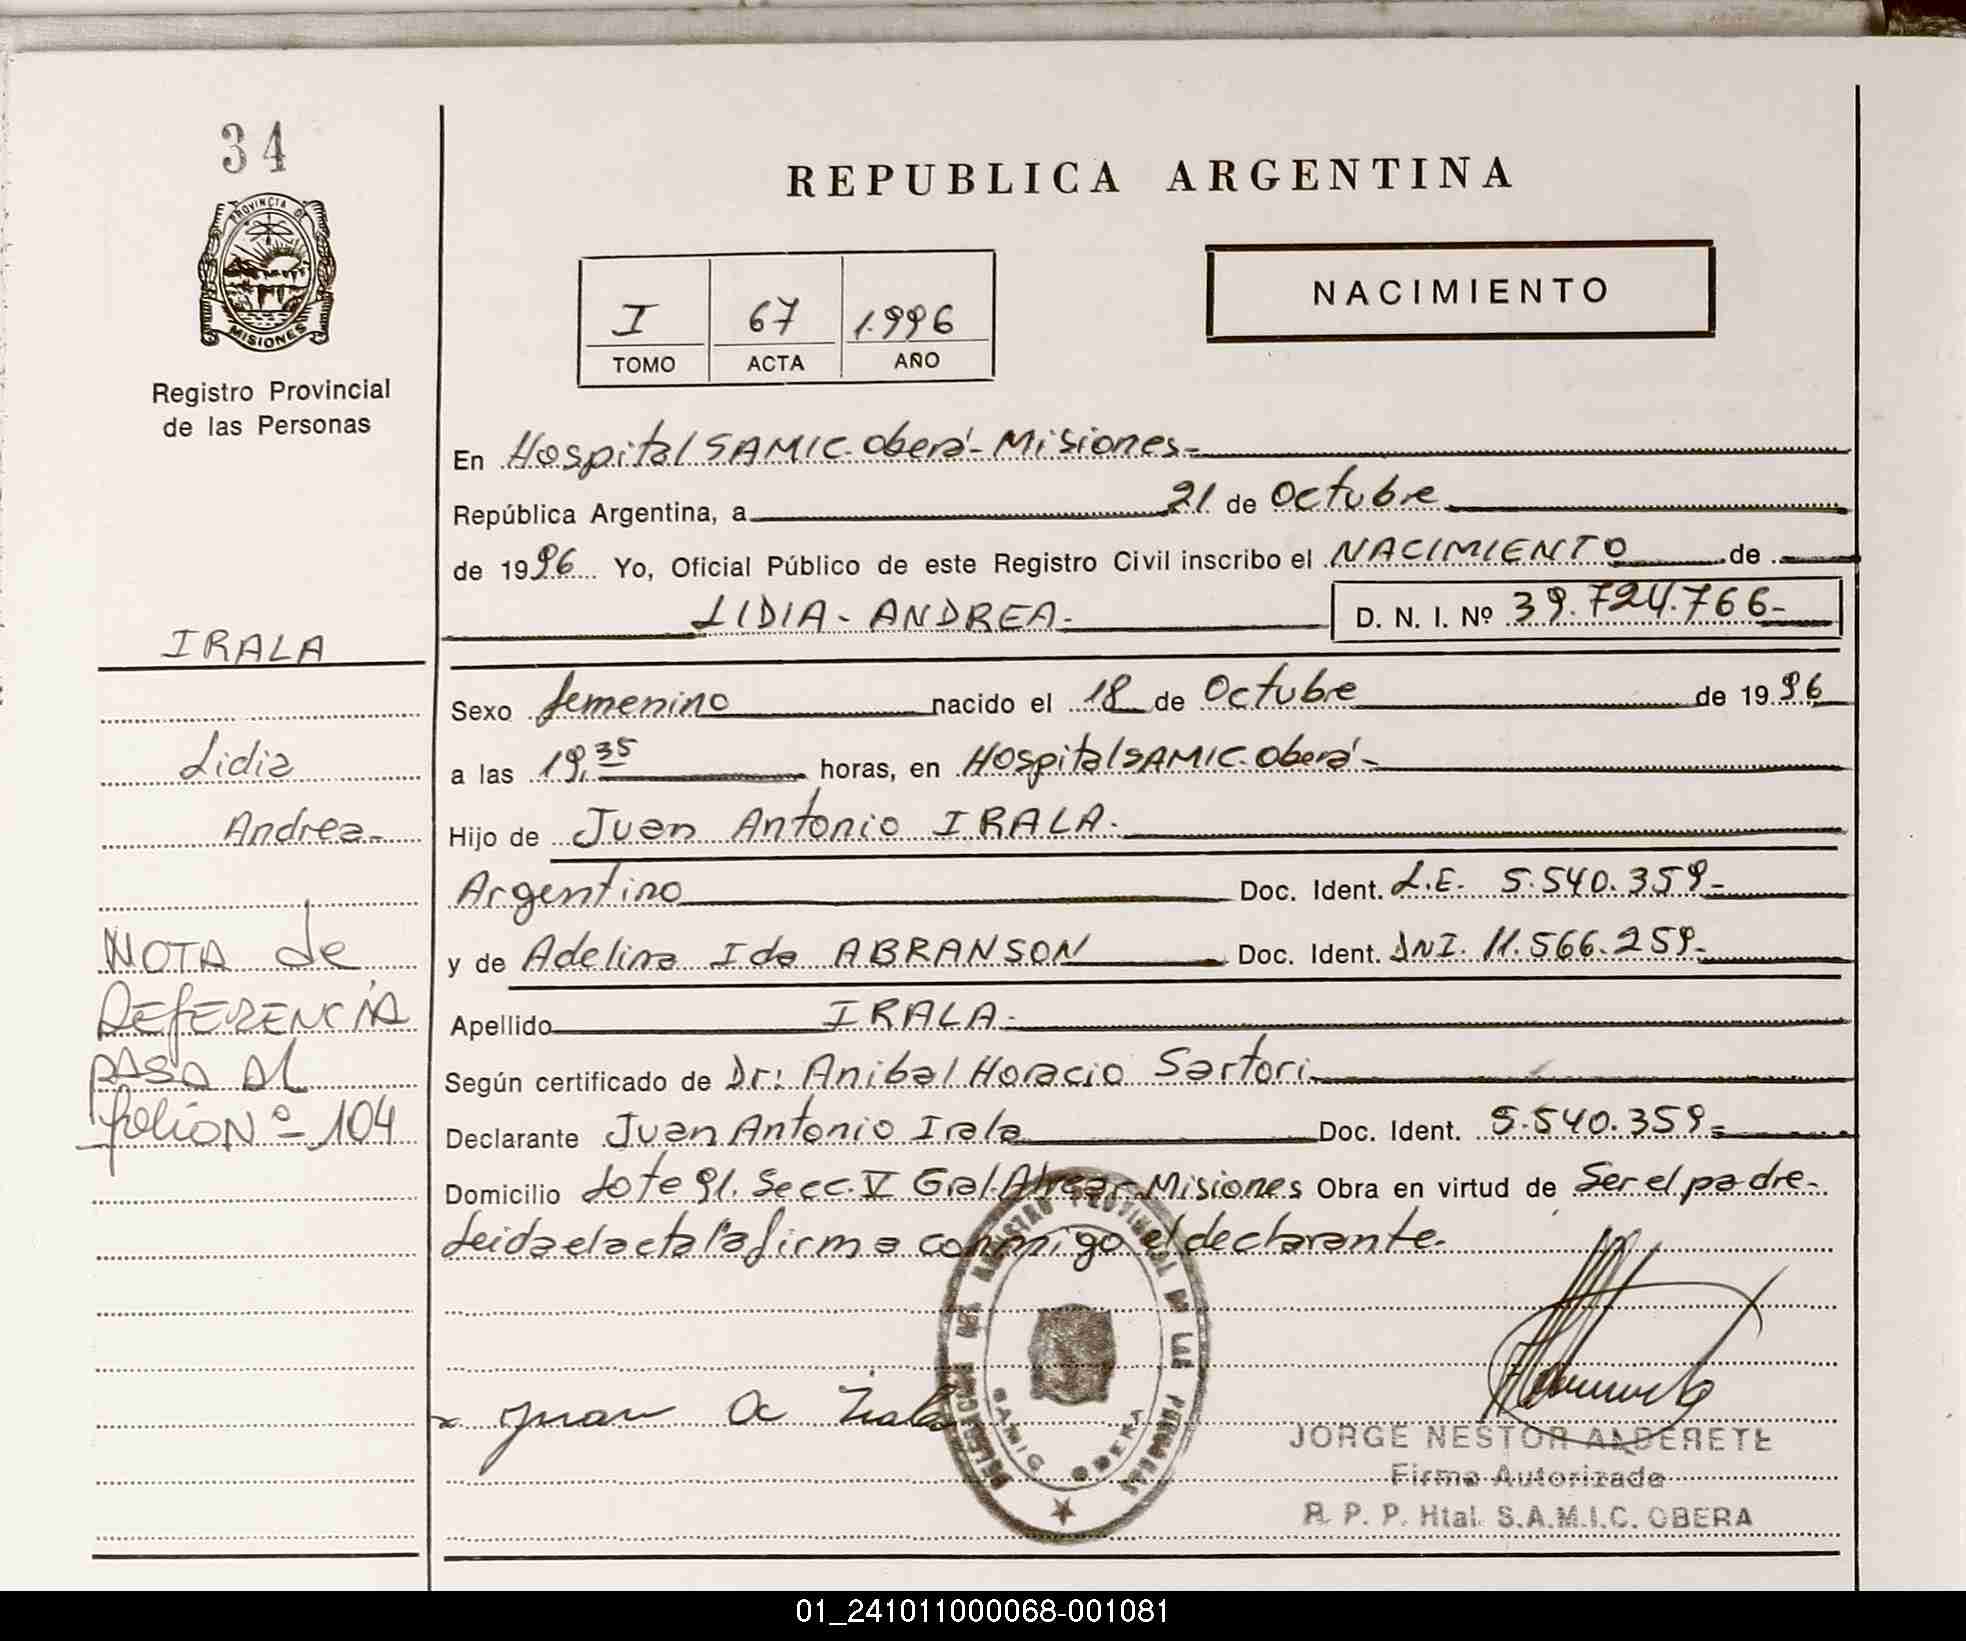 34
PROVINCIA DE
MISIONES
Registro Provincial
de las Personas
REPUBLICA ARGENTINA
I 67 1.996
TOMO ACTA AÑO
NACIMIENTO
En Hospital SAMIC. Oberá - Misiones -
República Argentina, a 21 de Octubre
de 1996 Yo, Oficial Público de este Registro Civil inscribo el NACIMIENTO de
LIDIA - ANDREA - D. N. I. Nº 39.724.766-
IRALA
Lidia
Andrea-
Sexo femenino nacido el 18 de Octubre de 1996
a las 19,35 horas, en Hospital SAMIC. Oberá -
Hijo de Juan Antonio IRALA.
Argentino Doc. Ident. L.E. 5.540.359-
y de Adelina Ida ABRANSON Doc. Ident. DNI. 11.566.259-
Apellido IRALA -
Según certificado de Dr: Anibal Horacio Sartori
Declarante Juan Antonio Irala Doc. Ident. 5.540.359-
Domicilio Lote 91. Secc. V Gral. Alvear - Misiones Obra en virtud de Ser el padre -
Leida el acta la firma conmigo el declarante.
NOTA de
REFERENCIA
PASA AL
folio Nº 104
Juan A Irala
SAMIC OBERA
JORGE NESTOR ALDERETE
Firma Autorizada
R. P. P. Htal. S.A.M.I.C. OBERA
01_241011000068-001081